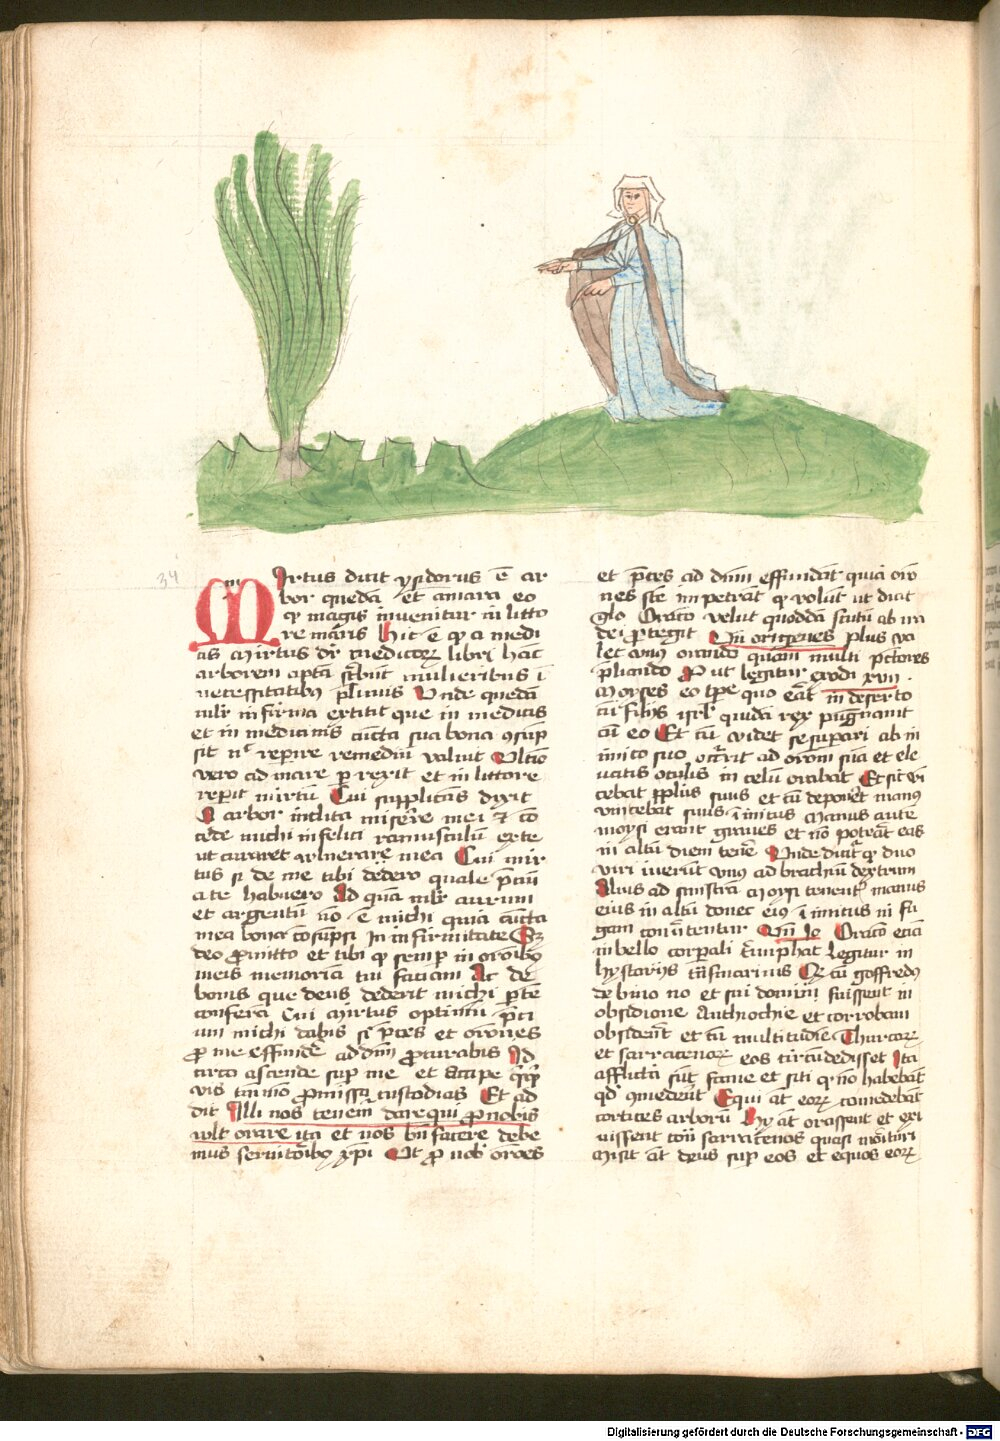 34
Mirtus dicit ysidorus ē ar
bor quedā et amara eo
qꝫ magis invenitur in litto
re maris Hic ē qꝫ a medi
cis Mirtus dr̄ medicoꝝ libri hanc
arborem aptā scbūt mulieribus ī
necessitatibꝰ plimis Unde quedā
mlr̄ infirma extitit que in medicis
et in medicinis cūcta sua bona ꝯsūp
sit nͨ repire remediū valuit Ultīo
vero ad mare prexit et in littore
repit mirtū Cui supplicans dixit
O arbor inclita miserere mei ⁊ cō
cede michi infelici ramusculū ex te
ut curaret vulnerare mea Cui mir
tus si de me tibi dedero quale pciū
a te habuero Ad quā mlr̄ aurum
et argentū nō ē michi quia cūcta
mea bona cōsūpsi in infirmitate Sꝫ
deo promitto et tibi qꝫ semp in orōibꝰ
meis memoriā tui faciam Ac de
bonis que deus dederit michi ptē
conferā Cui mirtus optimū pci
um michi dabis si pces et orōnes
pro me effunde ad dnm procurabis Id
circo ascende sup me et accipe
vis tm̄mō promissa custodias Et ad
dit Illi nos tenem dare qui pro nobis
vult orare ita et nos bn̄facere debe
mus servitoribꝰ xpi Ut pro nobis oroēs
et pces ad dnm effundāt quia orō
nes sctē impetrāt qꝫ volūt ut dicit
glo Oracō velut quoddā scutū ab ira
dei protegit Vn̄ origenes plus va
let unus orando quam multi pctores
pliando Put legitur exodi xvii
Moyses eo tpe quo erat in deserto
cū filijs isrl quidā rex pugnavit
cū eo Et cū videt se supari ab in
imico suo occurit ad orōm suā et ele
vatis oculis in celū orabat Et sic vī
cebat pplus suus et cū deponet manus
vincebat suus inimicus Manus autē
moysi erant graves et nō poterāt eas
in altū diem tenē Unde dicitur qꝫ duo
viri iverūt unus ad brachiū dextrum
Alius ad sinistrā Moysi tenent manus
eius in altū donec eiꝰ inimicus in fu
gam convertentur Vn̄ Ie Oracō etiā
in bello corpali triumphat Legitur in
hystorijs
de bino no et sui domini fuissent in
obsidione Anthiochie et corrobani
obsiderēt et cū multitudīe Thurcoꝝ
et sarracenoꝝ eos circūdedisset Ita
afflicti sūt fame et siti qꝫ nō habebāt
qd ꝯmederēt Equi at̄ eoꝝ comedebāt
cortices arborū Hy at̄ orassent et exi
vissent cont̄ sarracenos quasi morituri
Misit at̄ deus sup eos et equos eoꝝ
Digitalisierung gefördert durch die Deutsche Forschungsgemeinschaft - DFG